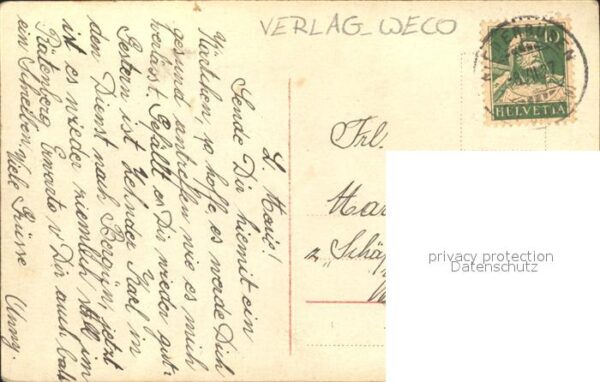 VERLAG_WECO
10
HELVETIA
L. Marie!
Sende Dir hiemit ein
Kärtchen, so hoffe, es werde Dich
gesund antreffen wie es mich
verlässt. Gefällt es Dir wieder gut.
Gestern ist Zehnder Karl in
den Dienst nach Bergün, jetzt
ist es wieder ziemlich still im
Erwarte v. Dir auch bald
ein Schreiben, Viele Grüsse
Frl.
Mar
z. „Schäf
privacy protection
Datenschutz